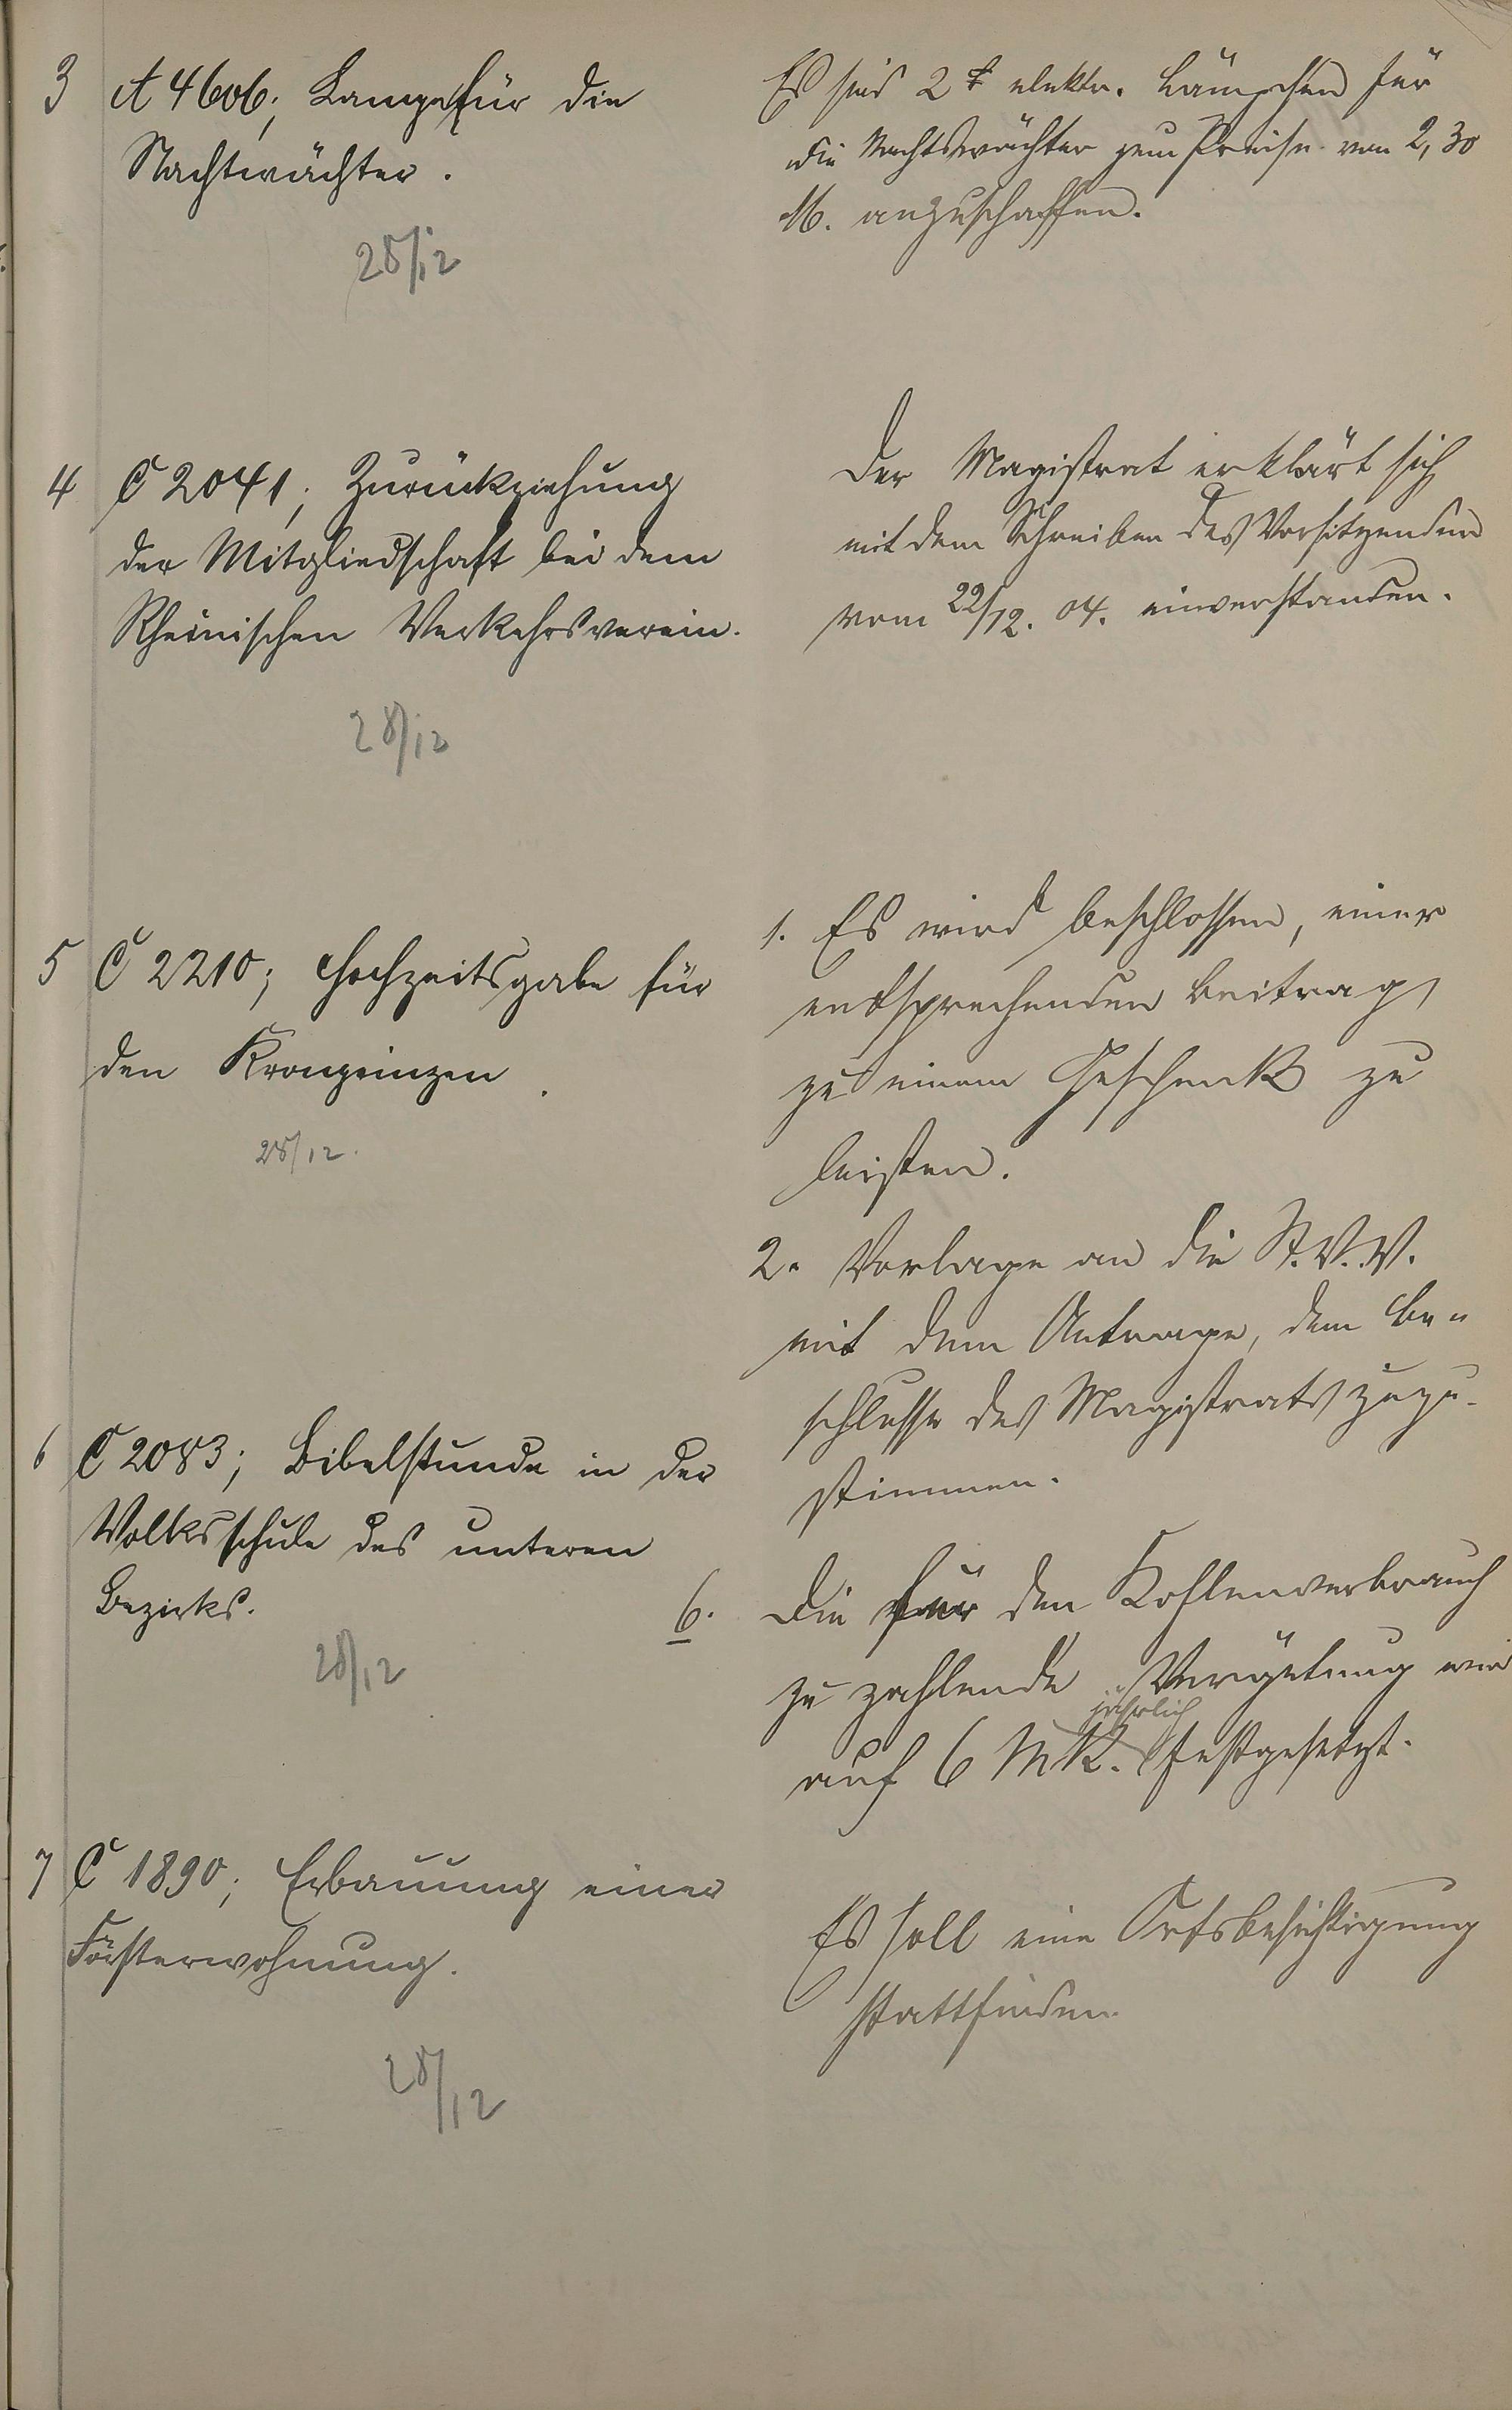 3 A 4606; Lampe für die
Nachtwächter.
28/12
Es sind 2 elektr. Lämpchen für
die Nachtswächter zum Preise von 2,30
M. anzuschaffen.
4 C 2041; Zurückziehung
der Mitgliedschaft bei dem
Rheinischen Verkehrsverein.
28/12
Der Magistrat erklärt sich
mit dem Schreiben des Vorsitzenden
vom 22/12. 04. einverstanden.
5 C 2210; Hochzeitsgabe für
den Kronprinzen.
28/12.
1. Es wird beschlossen, einen
entsprechenden Beitrag
zu einem Geschenk zu
leisten.
2. Vorlage an die St.V.V.
mit dem Antrage, dem Be-
schlusse des Magistrats zuzu-
stimmen.
6 C 2083; Bibelstunde in der
Volksschule des unteren
Bezirks.
28/12
6. Die für den Kohlenverbrauch
zu zahlende Vergütung wird
jährlich
auf 6 MK. festgesetzt.
7 C 1890; Erbauung einer
Försterwohnung.
28/12
Es soll eine Ortsbesichtigung
stattfinden.